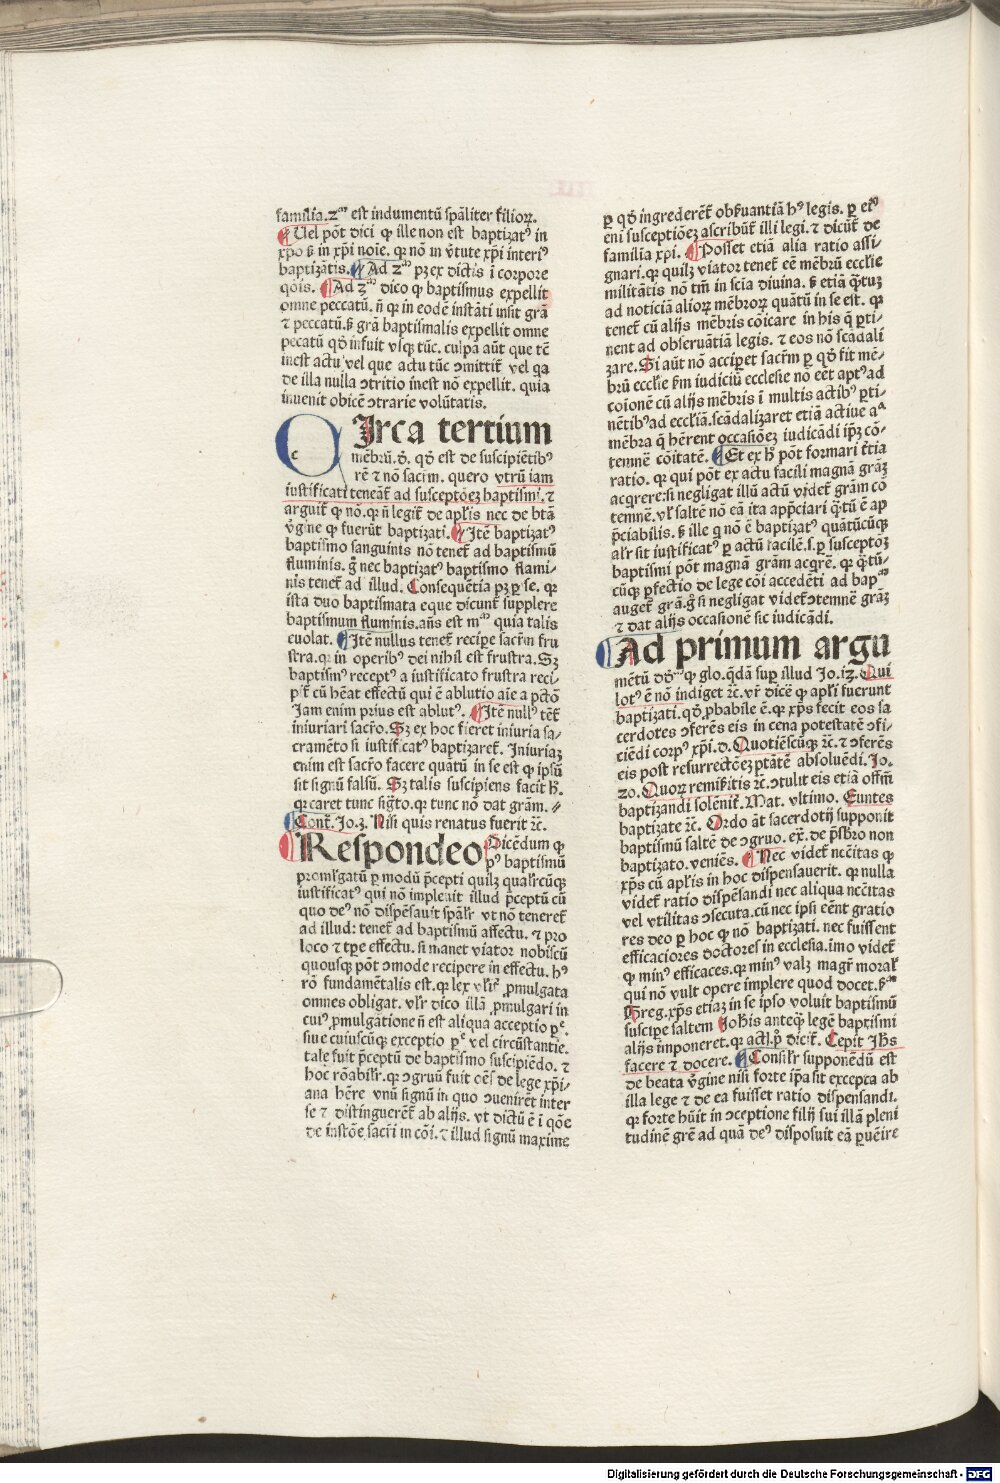 familia.2ᵐ est indumentū spāliter filioꝝ.
¶ Uel pōt dici ꝙ ille non est baptizatꝰ in
xp̄o ẜ in xp̄i noīe. qꝛ nō in v̄tute xp̄i interiꝰ
baptizātis. ¶ Ad 2ᵐ pꝫ ex dictis ī corpore
qōis. ¶ Ad 3ᵐ dico ꝙ baptismus expellit
omne peccatū. n̄ qꝛ in eodē instāti insit grā
⁊ peccatū. ẜ grā baptismalis expellit omne
pecatū qd̄ infuit vsqꝫ tūc. culpa aūt que tē
inest actu vel que actu tūc ↄmittit᷑ vel qa
de illa nulla ↄtritio inest nō expellit. quia
inuenit obicē ↄtrarie volūtatis.
CIrca tertium
mēbrū.q̄. qd̄ est de suscipiētibꝰ
rē ⁊ nō sacīm. quero vtrū iam
iustificati teneāt᷑ ad susceptōeꝫ baptismi. ⁊
arguit᷑ ꝙ nō. qꝛ n̄ legit᷑ de aplīs nec de btā
v̄gine ꝙ fuerūt baptizati. ¶ Itē baptizatꝰ
baptismo sanguinis nō tenet᷑ ad baptismū
fluminis. g̊ nec baptizatꝰ baptismo flami-
nis tenet᷑ ad illud. Consequētia pꝫ ꝑ se. qꝛ
ista duo baptismata eque dicunt᷑ supplere
baptismum fluminis. an̄s est mᵐ quia talis
euolat. ¶ Itē nullus tenet᷑ recipe sacrīm fru
stra. qꝛ in operibꝰ dei nihil est frustra. Sꝫ
baptismꝰ receptꝰ a iustificato frustra reci-
pit᷑ cū hēat effectū qui ē ablutio aīe a pctō
Iam enim prius est ablutꝰ. ¶ Itē nullꝰ tēt᷑
iniuriari sacrō. Sꝫ ex hoc fieret iniuria sa-
cramēto si iustificatꝰ baptizaret᷑. Iniuriaꝫ
enim est sacrō facere quātū in se est ꝙ ipsū
sit signū falsū. Sꝫ talis suscipiens facit hꝰ.
qꝛ caret tunc sigto. qꝛ tunc nō dat grām.
¶ Cont᷑. Io.3. Nisi quis renatus fuerit ⁊c̄.
¶ Respondeo Dicēdum ꝙ
pꝰ baptismū
promlgatū ꝑ modū p̄cepti quilꝫ qualr̄cūqꝫ
iustificatꝰ qui nō impleuit illud p̄ceptū cū
quo deꝰ nō dispēsauit spālr̄ vt nō teneret᷑
ad illud: tenet᷑ ad baptismū affectu. ⁊ pro
loco ⁊ tp̄e effectu. si manet viator nobiscū
quousqꝫ pōt ↄmode recipere in effectu. hꝰ
rō fundamētalis est. qꝛ lex vlis ꝓmulgata
omnes obligat. vlr̄ dico illā ꝓmulgari in
cuiꝰ ꝓmulgatione n̄ est aliqua acceptio ꝑᵉ.
siue cuiuscūqꝫ exceptio ꝑᵉ vel circūstantie.
tale fuit p̄ceptū de baptismo suscipiēdo. ⁊
hoc rōabilr̄. qꝛ ↄgruū fuit oēs de lege xp̄i-
ana hēre vnū signū in quo ↄuenirēt inter
se ⁊ distinguerēt᷑ ab alijs. vt dictū ē ī qōe
de instōe sacrī in cōi. ⁊ illud signū maxime
ꝑ qd̄ ingrederēt᷑ obẜuantiā hꝰ legis. ꝑ eiꝰ
eni susceptiōeꝫ ascribūt᷑ illi legi. ⁊ dicūt᷑ de
familia xp̄i. ¶ Posset etiā alia ratio assi-
gnari. qꝛ quilꝫ viator tenet᷑ eē mēbrū ecclīe
militātis nō tm̄ in scīa diuina. ẜ etiā q̄tuꝫ
ad noticiā alioꝝ mēbroꝝ quātū in se est. qꝛ
tenet᷑ cū alijs mēbris cōicare in his q̄ ꝑti-
nent ad obseruātiā legis. ⁊ eos nō scādali
zare. Si aūt nō acciperet sacrīm ꝑ qd̄ fit mē-
brū ecclīe ẜm iudiciū ecclesie nō eēt aptꝰ ad
coīonē cū alijs mēbris ī multis actibꝰ ꝑti-
nētibꝰ ad ecclīā. scādalizaret etiā actiue aᵃ
mēbra q̄ hērent occasiōeꝫ iudicādi ip̄ꝫ cō-
temnē cōitatē. ¶ Et ex hꝰ pōt formari t̄tia
ratio. qꝛ qui pōt ex actu facili magnā grāꝫ
acqrere: si negligat illū actū videt᷑ grām cō
temnē. vl̄ saltē nō eā ita app̄ciari q̄tū ē ap
p̄ciabilis. ẜ ille q nō ē baptizatꝰ quātūcūqꝫ
alr̄ sit iustificatꝰ ꝑ actū facilē. s. ꝑ susceptōꝫ
baptismi pōt magnā grām acqrē. qꝛ q̄tū-
cūqꝫ ꝑfectio de lege cōi accedēti ad bapᵐ
auget᷑ grā. g̊ si negligat videt᷑ ↄtemnē grāꝫ
⁊ dat alijs occasionē sic iudicādi.
¶ Ad primum argu
mētū dꝰᵐ ꝙ glo. q̄dā suꝑ illud Io.13. Qui
lotꝰ ē nō indiget ⁊c̄. vr̄ dicē ꝙ aplī fuerunt
baptizati. qd̄ ꝓbabile ē. qꝛ xp̄s fecit eos sa
cerdotes ↄferēs eis in cena potestatē ↄfi-
ciēdi corpꝰ xp̄i. d. Quotiēscūqꝫ ⁊c̄. ⁊ ↄferēs
eis post resurrectōeꝫ ptātē absoluēdi. Io.
20. Quoꝝ remiẜitis ⁊c̄. ↄtulit eis etiā offīm
baptizandi solēnit᷑. Mat. vltimo. Euntes
baptizate ⁊c̄. Ordo āt sacerdotij supponit
baptismū saltē de ↄgruo. ex̄. de p̄sbr̄o non
baptizato. veniēs. ¶ Nec videt᷑ nec̄itas ꝙ
xp̄s cū aplīs in hoc dispensauerit. qꝛ nulla
videt᷑ ratio dispēsandi nec aliqua nec̄itas
vel vtilitas ↄsecuta. cū nec ipsi eēnt gratio
res deo ꝑ hoc ꝙ nō baptizati. nec fuissent
efficaciores doctores in ecclesia. imo videt᷑
ꝙ minꝰ efficaces. qꝛ minꝰ valꝫ magr̄ moral̄
qui nō vult opere implere quod docet. ẜᵐ
Greg. xp̄s etiaꝫ in se ipso voluit baptismū
suscipe saltem Iohīs anteqꝫ legē baptismi
alijs imponeret. qꝛ act.pꝰ dicit᷑. Cepit Ihs̄
facere ⁊ docere. ¶ Consilr̄ supponēdū est
de beata v̄gine nisi forte ip̄a sit excepta ab
illa lege ⁊ de ea fuisset ratio dispensandi.
qꝛ forte hūit in ↄceptione filij sui illā pleni
tudinē grē ad quā deꝰ disposuit eā ꝑuēire
Digitalisierung gefördert durch die Deutsche Forschungsgemeinschaft - DFG